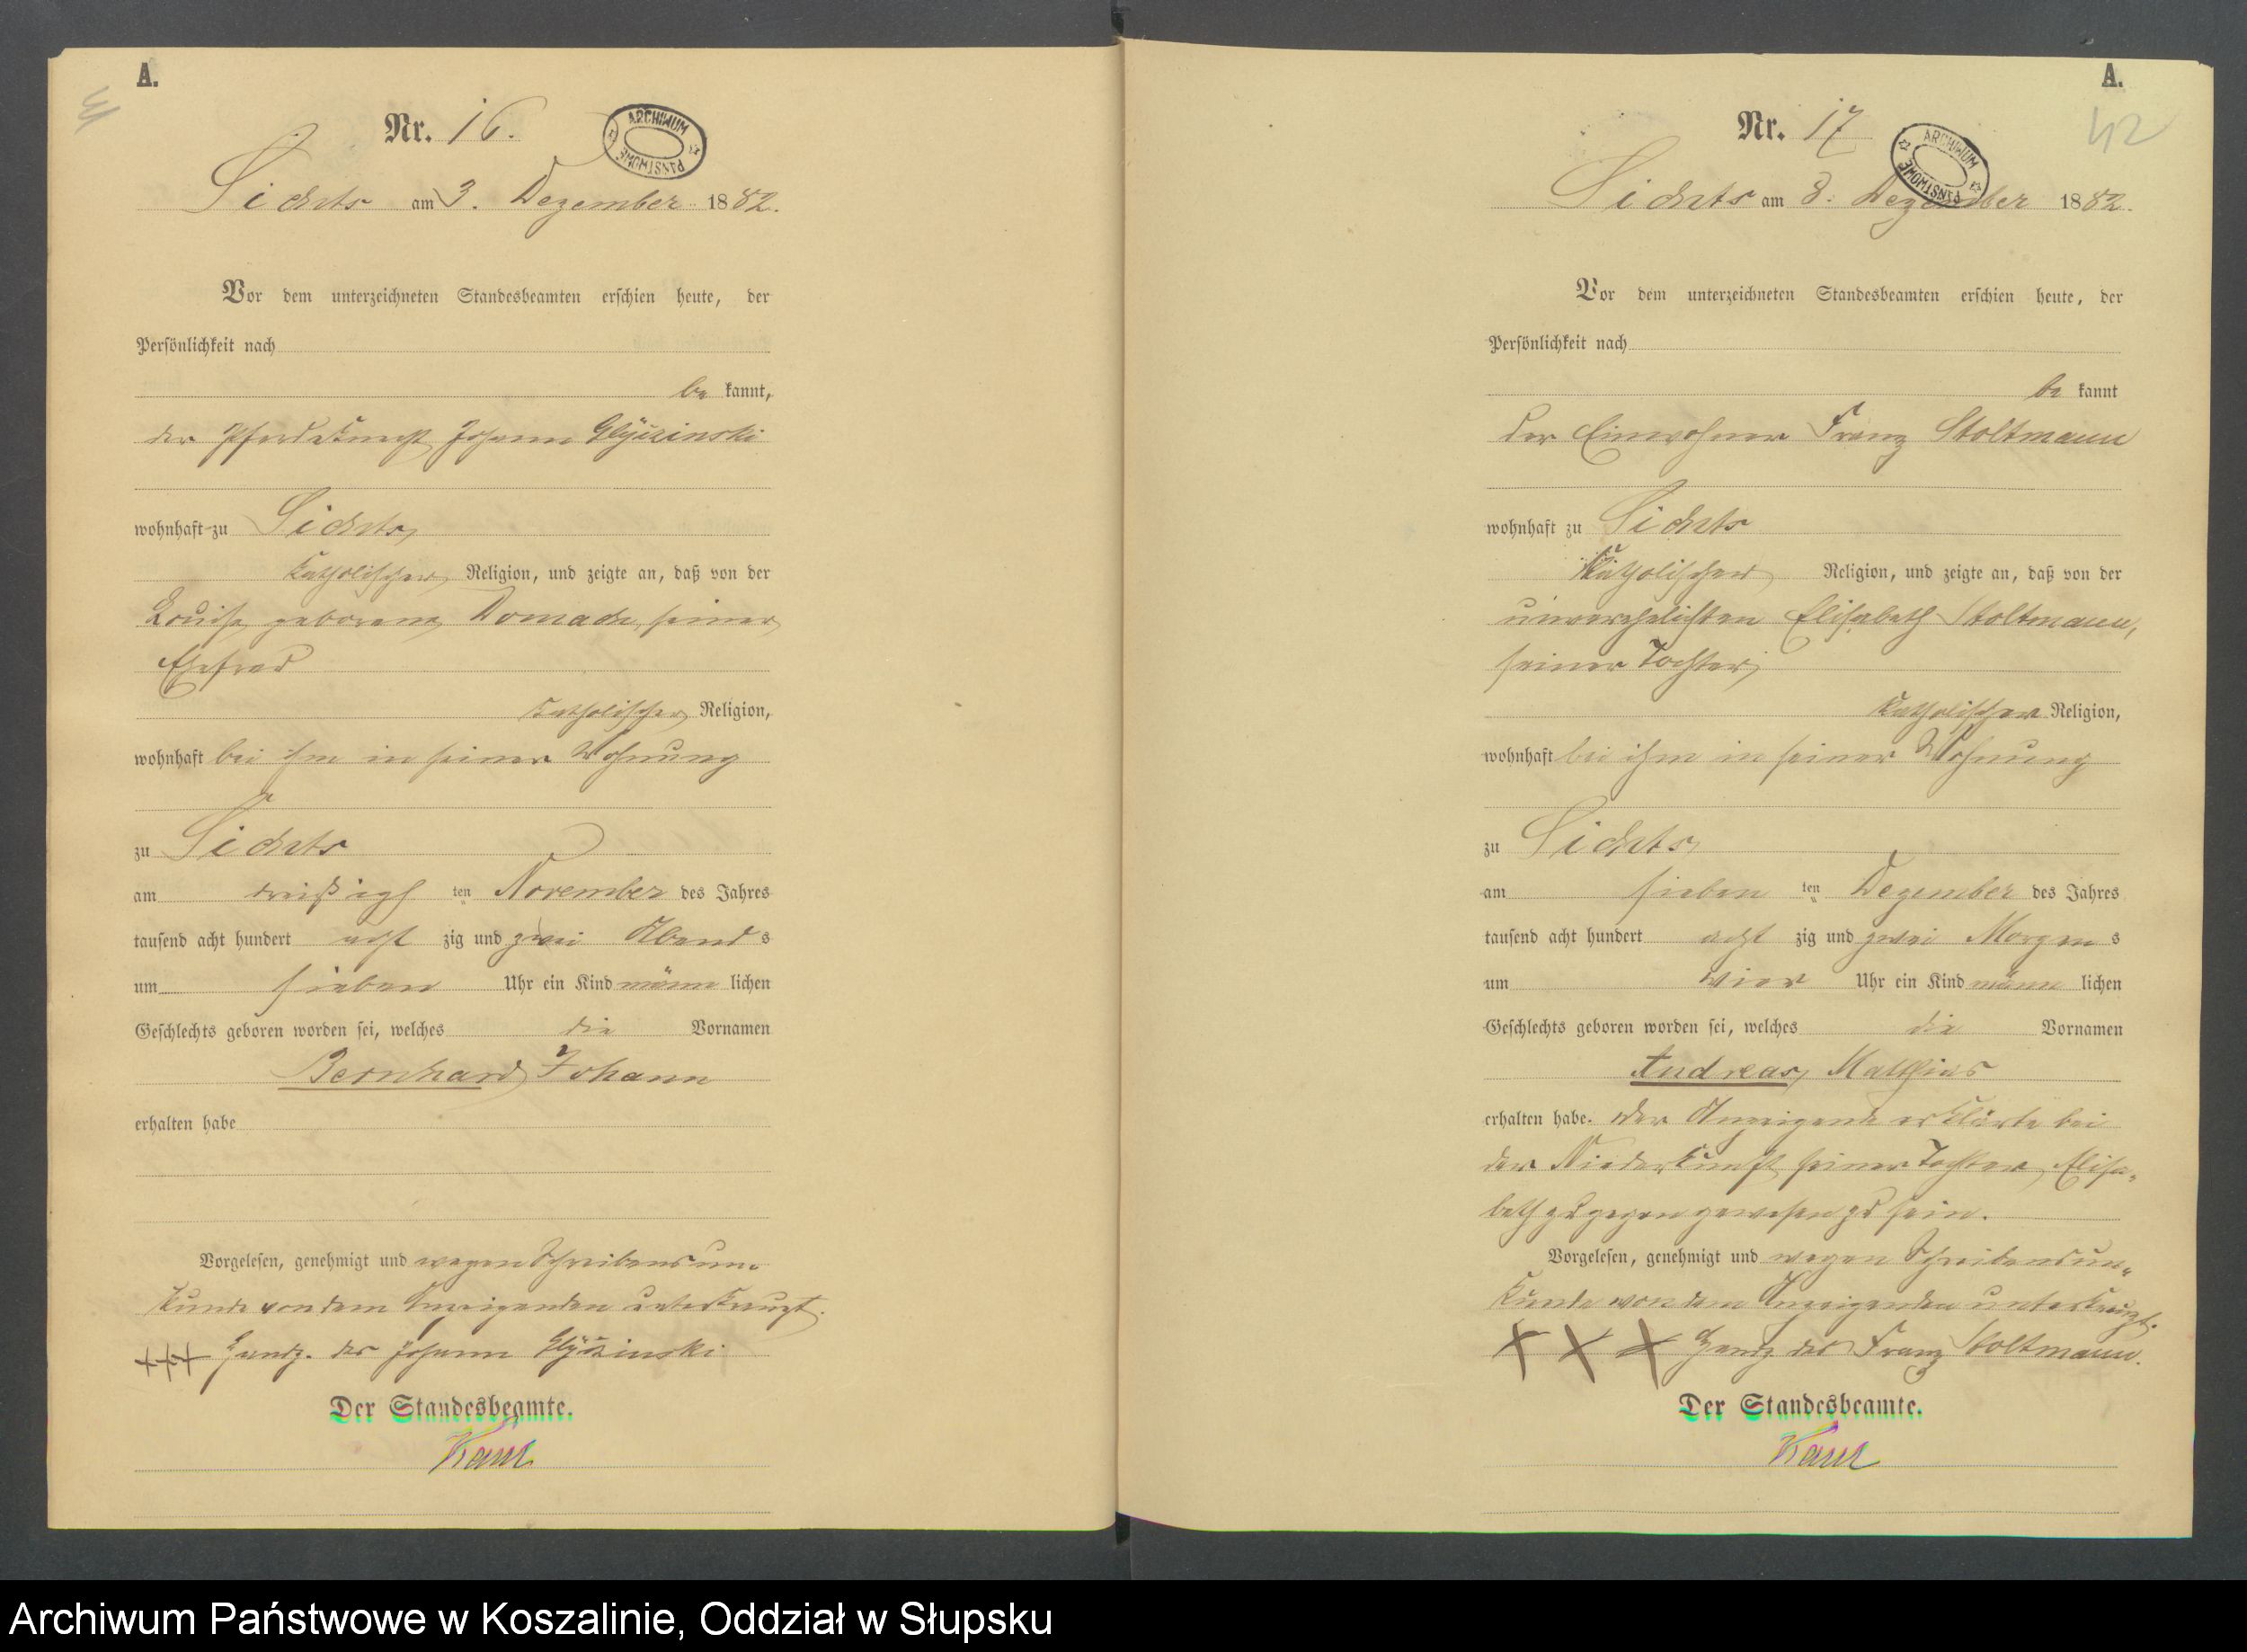 A.
Nr. 16.
ARCHIWUM PAŃSTWOWE
Sichts am 3. Dezember 1882.
Vor dem unterzeichneten Standesbeamten erschien heute, der
Persönlichkeit nach
be kannt,
der Pferdeknecht Johann
wohnhaft zu Sichts,
katholischer Religion, und zeigte an, daß von der
Louise geborene seiner
Ehefrau
katholischer Religion,
wohnhaft bei ihm in seiner Wohnung
zu Sichts
am dreißigst ten November des Jahres
tausend acht hundert acht zig und zwei Abend s
um sieben Uhr ein Kind männ lichen
Geschlechts geboren worden sei, welches die Vornamen
Bernhard, Johann
erhalten habe
Vorgelesen, genehmigt und wegen Schreibensun-
kunde von dem Anzeigenden unterkreuzt.
+++ Handz. des Johann
Der Standesbeamte.
A.
42
Nr. 17
ARCHIWUM PAŃSTWOWE
Sichts am 8. Dezember 1882.
Vor dem unterzeichneten Standesbeamten erschien heute, der
Persönlichkeit nach
be kannt
der Einwohner Franz Stoltmann
wohnhaft zu Sichts
katholischer Religion, und zeigte an, daß von der
unverehelichten Elisabeth Stoltmann,
seiner Tochter,
katholischer Religion,
wohnhaft bei ihm in seiner Wohnung
zu Sichts,
am sieben ten Dezember des Jahres
tausend acht hundert acht zig und zwei Morgen s
um vier Uhr ein Kind männ lichen
Geschlechts geboren worden sei, welches die Vornamen
Andreas, Matthias
erhalten habe. Der Anzeigende erklärte bei
der Niederkunft seiner Tochter, Elisa-
beth zugegen gewesen zu sein.
Vorgelesen, genehmigt und wegen Schreibensun-
kunde von dem Anzeigenden unterkreuzt.
+ + + Handz. des Franz Stoltmann.
Der Standesbeamte.
Archiwum Państwowe w Koszalinie, Oddział w Słupsku